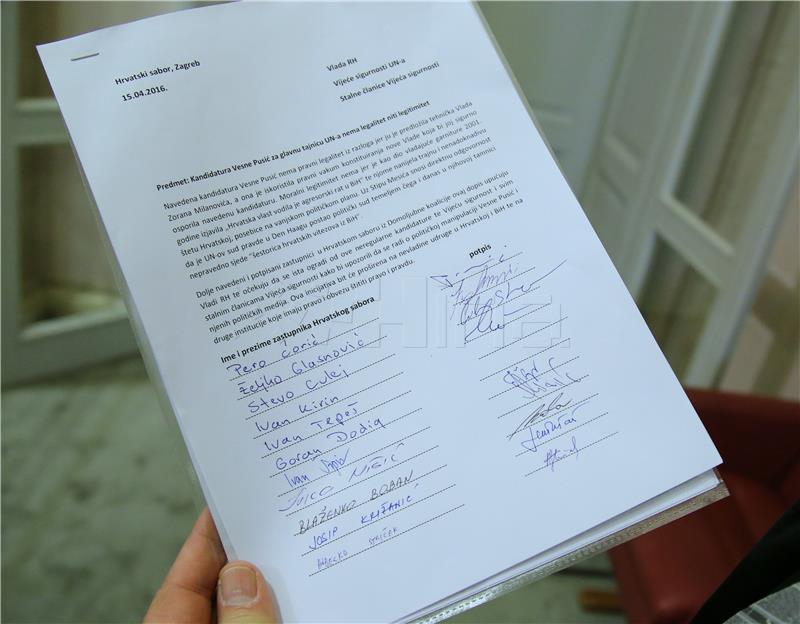 Hrvatski sabor, Zagreb
15.04.2016.
Vlada RH
Vijeće sigurnosti UN-a
Stalne članice Vijeća sigurnosti
Predmet: Kandidatura Vesne Pusić za glavnu tajnicu UN-a nema legalitet niti legitimitet
Navedena kandidatura Vesne Pusić nema pravni legalitet iz razloga jer ju je predložila tehnička Vlada
Zorana Milanovića, a ona je iskoristila pravni vakum konstituiranja nove Vlade koja bi joj sigurno
osporila navedenu kandidaturu. Moralni legitimitet nema jer je kao dio vladajuće garniture 2001.
godine izjavila „Hrvatska vlast vodila je agresorski rat u BiH" te njime nanijela trajnu i nenadoknadivu
štetu Hrvatskoj, posebice na vanjskom političkom planu. Uz Stipu Mesića snosi direktnu odgovornost
da je UN-ov sud pravde u Den Haagu postao politički sud temeljem čega i danas u njihovoj tamnici
nepravedno sjede "Šestorica hrvatskih vitezova iz BiH".
Dolje navedeni i potpisani zastupnici u Hrvatskom saboru iz Domoljubne koalicije ovaj dopis upućuju
Vladi RH te očekuju da se ista ogradi od ove neregularne kandidature te Vijeću sigurnosti i svim
stalnim članicama Vijeća sigurnosti kako bi upozorili da se radi o političkoj manipulaciji Vesne Pusić i
njenih političkih medija. Ova inicijativa bit će proširena na nevladine udruge u Hrvatskoj i BiH te na
druge institucije koje imaju pravo i obvezu štititi pravo i pravdu.
Ime i prezime zastupnika Hrvatskog sabora
potpis
Pero Ćorić
Željko Glasnović
Stevo Culej
Ivan Kirin
Ivan Tepeš
Goran Dodig
Ivan
BLAŽENKO BOBAN
JOSIP KRIŽANIĆ
Hina